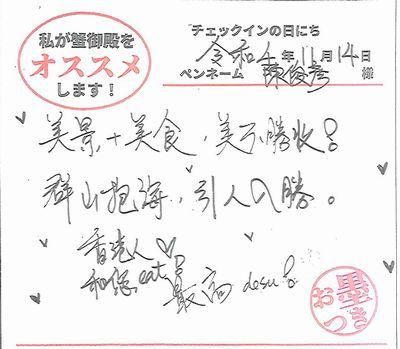 私が蟹御殿を
オススメ
します！
チェックインの日にち
令和4年11月14日
ペンネーム 陳俊彥 様
美景+美食，美不勝收！
群山抱海，引人入勝。
香港人♡
和傢eat！
最高desu！
お墨つき